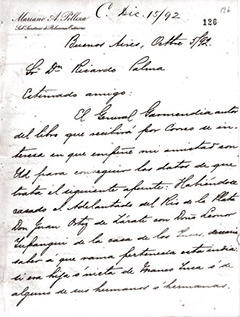 Mariano A. Pelliza
Sub Secretario de Relaciones Exteriores
C. Dic. 15/92
126
136
Buenos Aires, Octbe 5/92.
Sr Dn Ricardo Palma
Estimado amigo:
El General Garmendia autor
del libro que recibirá por Correo se in-
teresa en que empeñe mi amistad con
Ud para conseguir los datos de que
trata el siguiente apunte: Habiéndose
casado el Adelantado del Rio de la Plata
Don Juan Ortiz de Zárate con Doña Leonor
Yupanqui de la casa de los Incas, desearia
saber á que rama pertenecia esta
si era hija ó nieta de Manco Inca ó de
alguno de sus hermanos ó hermanas.